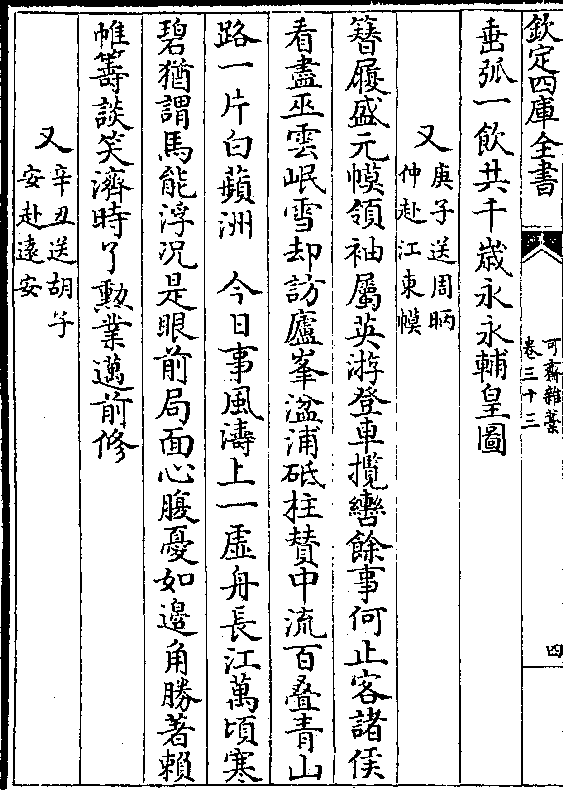 欽定四庫全書
可齋雜藁
卷三十三
四
垂弧一飲共千歲永永輔皇圖
又
庚子送周昞
仲赴江東幙
簪履盛元幙領袖屬英游登車攬轡餘事何止客諸侯
看盡巫雲岷雪却訪廬峯湓浦砥柱贊中流百疊青山
路一片白蘋洲　今日事風濤上一虛舟長江萬頃寒
碧猶謂馬能浮況是眼前局面心腹憂如邊角勝著賴
帷籌談笑濟時了勲業邁前修
又
辛丑送胡子
安赴遠安